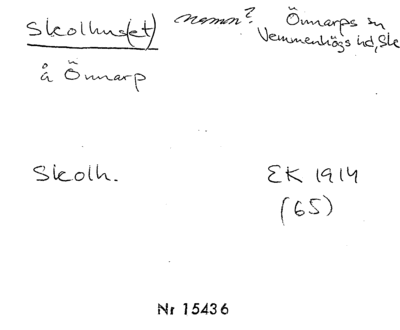 Skolhus(et) namn? Önnarps sn
Vemmenhögs hd, Sk
å Önnarp
Skolh. EK 1914
(65)
Nr 15436